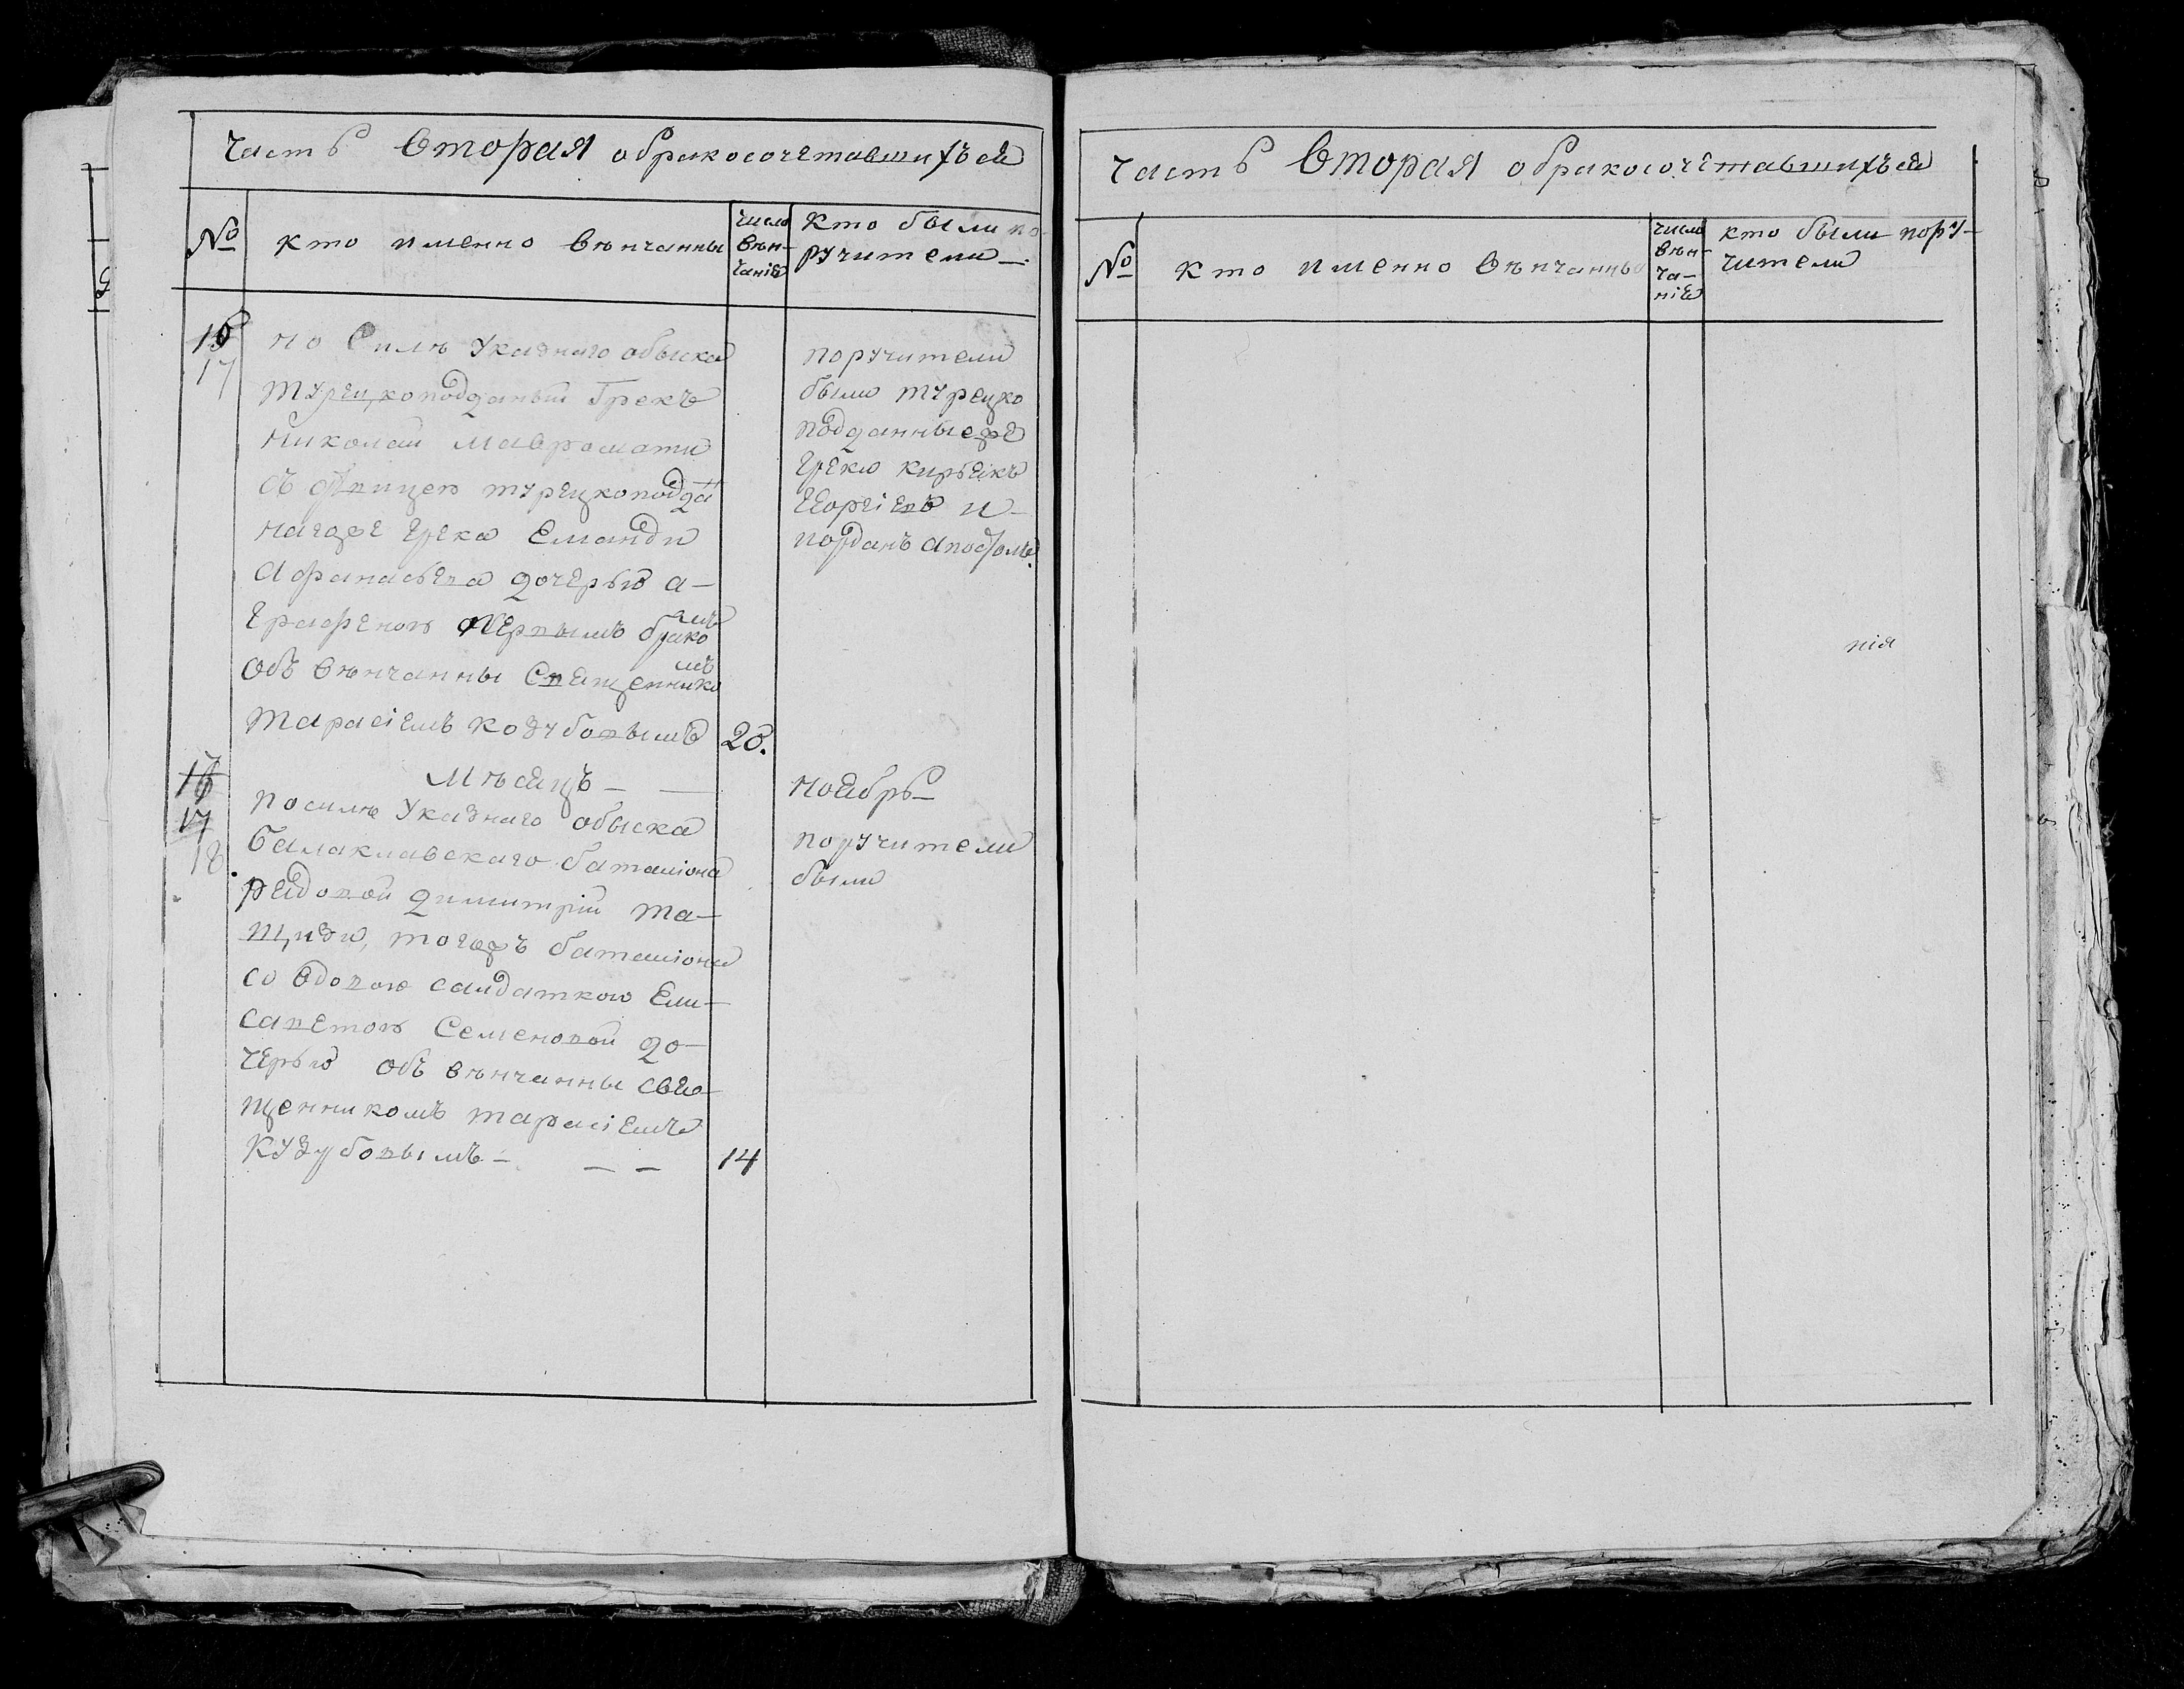 Часть Вторая о бракосочетавшихъся
№
кто именно вѣнчанны
число вѣн-чанiе
кто были по-
ручители
16
17
По Силѣ Указнаго обыска
турецкоподданый Грекъ
Николай Мавромати
съ девицею турецкоподда
нагоже грека Еманди
Афанасьева дочерью а-
графеною первымъ бракомъ
объ венчанны Священникомъ
Тарасiемъ Козубовымъ 28.
поручители
были турецко
подданныеже
греки Кирьякъ
Георгiевъ и
Иорданъ Апостолъ.
Мѣсяцъ Ноябрь
16
17
18.
по силѣ Указнаго обыска
Балаклавскаго баталiона
рядовой Димитрiй Та-
щизи, тогожъ баталiона
со вдовою салдаткою Ели-
саветою Семеновой до-
черью объ вѣнчанны свя-
щенникомъ Тарасiемъ
Кузубовымъ 14
поручители
были
Часть Вторая о бракосочетавшихъся
№
кто именно Вѣнчанны
число вѣн-ча-нiе
кто были пору-
чители
нiя